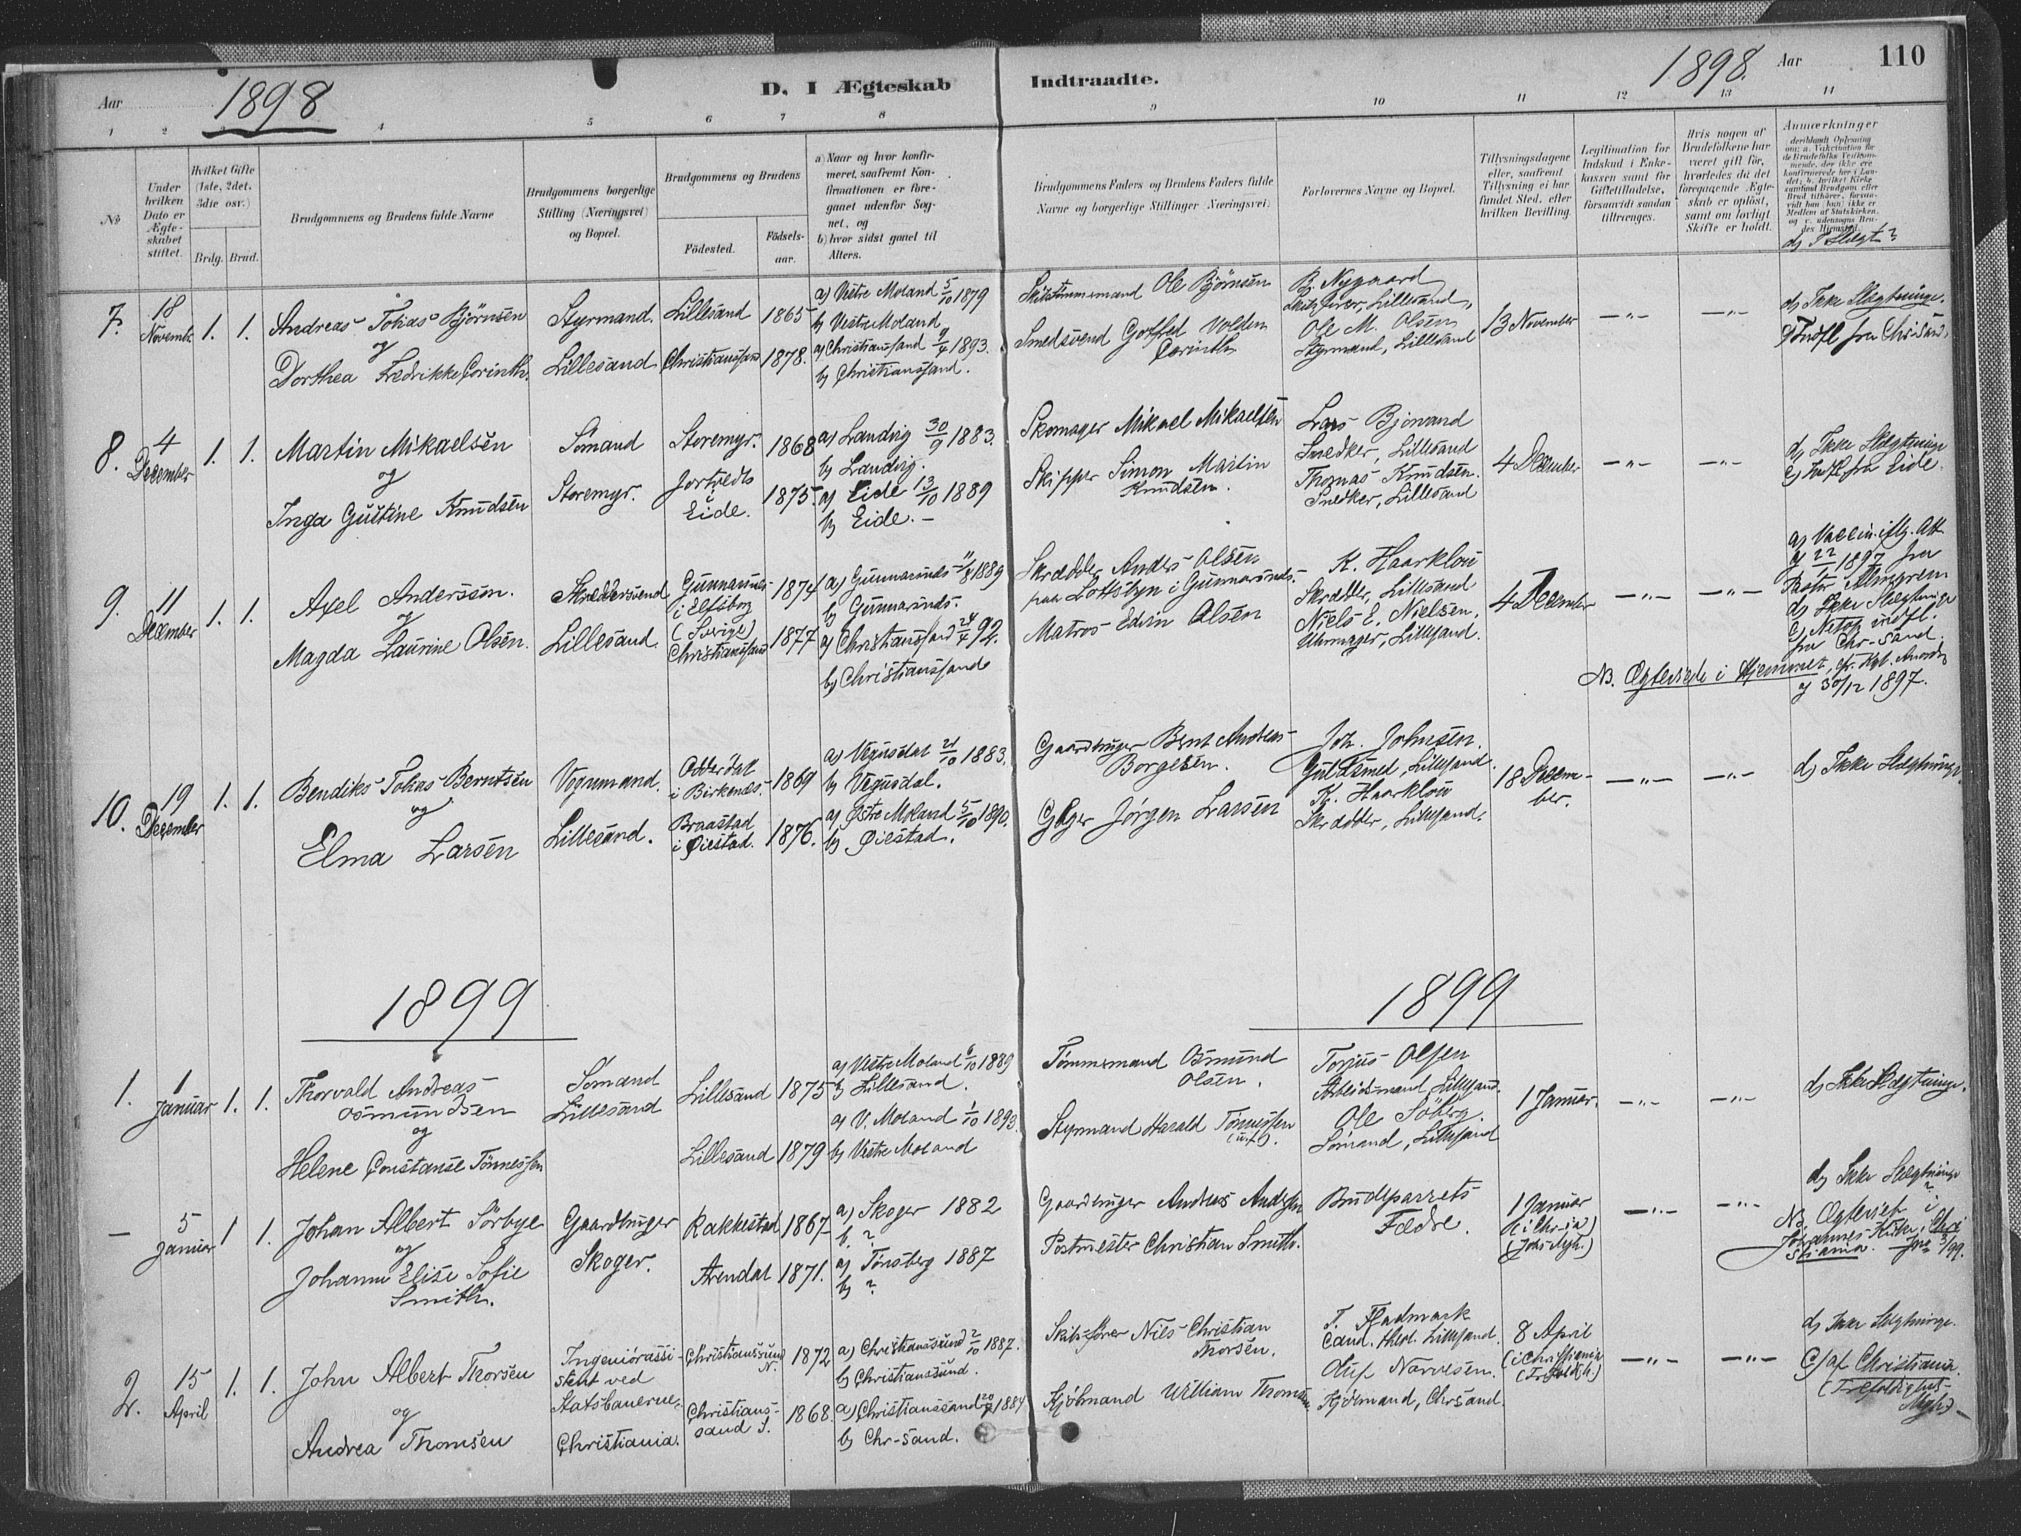 Aar 1898 D. I Ægteskab Indtraadte. 1898. Aar 110
1 2 3 4 5 6 7 8 9 10 11 12 13 14
No
Under hvilken Dato er Ægteskabet stiftet.
Hvilket Gifte (1ste, 2det, 3die osv.)
Brdg. Brud.
Brudgommens og Brudens fulde Navne
Brudgommens borgerlige Stilling (Næringsvei) og Bopæl.
Brudgommens og Brudens
Fødested.
Fødselsaar.
a) Naar og hvor konfirmeret, saafremt Konfirmationen er foregaaet udenfor Sognet, og
b) hvor sidst gaaet til Alters.
Brudgommens Faders og Brudens Faders fulde Navne og borgerlige Stillinger (Næringsvei)
Forlovernes Navne og Bopæl.
Tillysningsdagene eller, saafremt Tillysning ei har fundet Sted, efter hvilken Bevilling.
Legitimation for Indskud i Enkekassen samt for Giftetilladelse, forsaavidt saadan tiltrænges.
Hvis nogen af Brudefolkene har været gift før, hvorledes da det foregaaende Ægteskab er opløst, samt om lovligt Skifte er holdt.
Anmærkninger
d) I Slægt?
7. 18 Novembr. 1. 1.
Andreas Tobias Bjørnsen
og
Dorthea Fredrikke Corinth.
Styrmand.
Lillesand
Lillesand 1865
Christianssand 1878.
a) Vestre Moland 5/10 1879
b) Vestre Moland
a) Christianssand 9/4 1893.
b) Christianssand.
Skibstømmermand Ole Bjørnsen
Smedsvend Gotfred Volden
Corinth
B. Nygaard
Skibsfører, Lillesand,
Ole M. Olsen
Styrmand, Lillesand
13 November
—"— —"—
d) Ikke Slægtninge.
c) Indfl fra Chrisand.
8. 4 December 1. 1.
Martin Mikaelsen
og
Inga Gustine Knudsen
Sømand
Storemyr.
Storemyr. 1868
Jortveds
Eide. 1875.
a) Landvig 30/9 1883.
b) Landvig.
a) Eide 13/10 1889
b) Eide. —
Skomager Mikael Mikaelsen
Skipper Simon Martin
Knudsen.
Lars Bjorvand
Snedker, Lillesand
Thomas Knudsen.
Snedker, Lillesand
4 December
—"— —"—
d) Ikke Slægtninge
c) Indfl. fra Eide.
9. 11 December 1. 1.
Axel Anderssen.
og
Magda Laurine Olsen.
Skræddersvend
Lillesand.
Gunnarsnes
i Elfsborg
(Sverige) 1874
Christianssand 1877
a) Gunnarsnds 1889
b) Gunnarsnds.
a) Christianssand 24/4 92.
b) Christianssand
Skrædder Anders Olsen
paa Lottsbyn i Gunnarsnds.
Matros Edvin Olsen
K. Haarklou
Skrædder, Lillesand
Niels E. Nielsen.
Uhrmager, Lillesand.
4 December
—"— —"—
a) Vaccin. iflg. Att.
af 22/7 1897 fra
Pastor Almgren
d) Ikke Slægtninge
c) Netop indfl.
fra Chr-sand.
NB. Ægteviede i Hjemmet, cfr. Kgl. Anordn
af 30/12 1897.
10. 19 Dezember 1. 1.
Bendiks Tobias Berntsen
og
Elma Larsen
Vognmand.
Lillesand.
Odderdal
i Birkenes. 1869
Braastad
i Øiestad. 1876.
a) Vegusdal 21/10 1883.
b) Vegusdal.
a) Østre Moland 5/10 1890.
b) Øiestad.
Gaardbruger Bernt Andreas
Borgesen.
Gartner Jørgen Larsen
Joh. Johnsen.
Guldsmed, Lillesand.
K. Haarklou
Skrædder, Lillesand.
18 Desember.
—"— —"—
d) Ikke Slægtninge.
1899 1899
1. 1 Januar 1. 1.
Thorvald Andreas
Osmundsen
og
Helene Constanse Tønnessen
Sømand
Lillesand
Lillesand 1875
Lillesand 1879
a) Vestre Moland 6/10 1889
b) Lillesand.
a) V. Moland 1/10 1893.
b) Vestre Moland
Tømmermand Osmund
Olsen.
Styrmand Harald Tønnessen
(u.f.).
Torjus Olsen
Arbeidsmand, Lillesand.
Ole Söberg.
Sømand, Lillesand
1 Januar.
—"— —"—
d) Ikke Slægtninge.
— 5 Januar 1 1.
Johan Albert Sörbye
og
Johanne Elise Sofie
Smith.
Gaardbruger
Skoger.
Rakkestad 1867
Arendal 1871.
a) Skoger 1882
b. ?
a) Tønsberg 1887
b) ?
Gaardbruger Andreas Andersen
Postmester Christian Smith.
Brudeparrets
Fædre.
1 Januar
(i Chr-ia)
(Johs Mgh.)
—"— —"—
d) Ikke Slægtninge
?
NB. Ægteviet i
Johannes Kirke i Christiania. 5/1 99.
2. 15 April 1. 1.
John Albert Thorsen
og
Andrea Thomsen
Ingeniørassistent ved
Statsbanerne,
Christiania.
Christianssund
N. 1872
Christianssand S. 1868.
a) Christianssund 2/10 1887.
b) Christianssund.
a) Christianssand 1884
b) Chr-sand.
Skibsfører Nils Christian
Thorsen.
Kjøbmand William Thomsen
T. Fladmark
Cand. theol. Lillesand.
Oluf Narvesen.
Kjøbmand, Chrsand.
8 April
(i Christiania
(Trefoldigh.)
—"— —"—
d) Ikke Slægtninge.
c) af Christiania
(Trefoldigheds-
Mgh) —